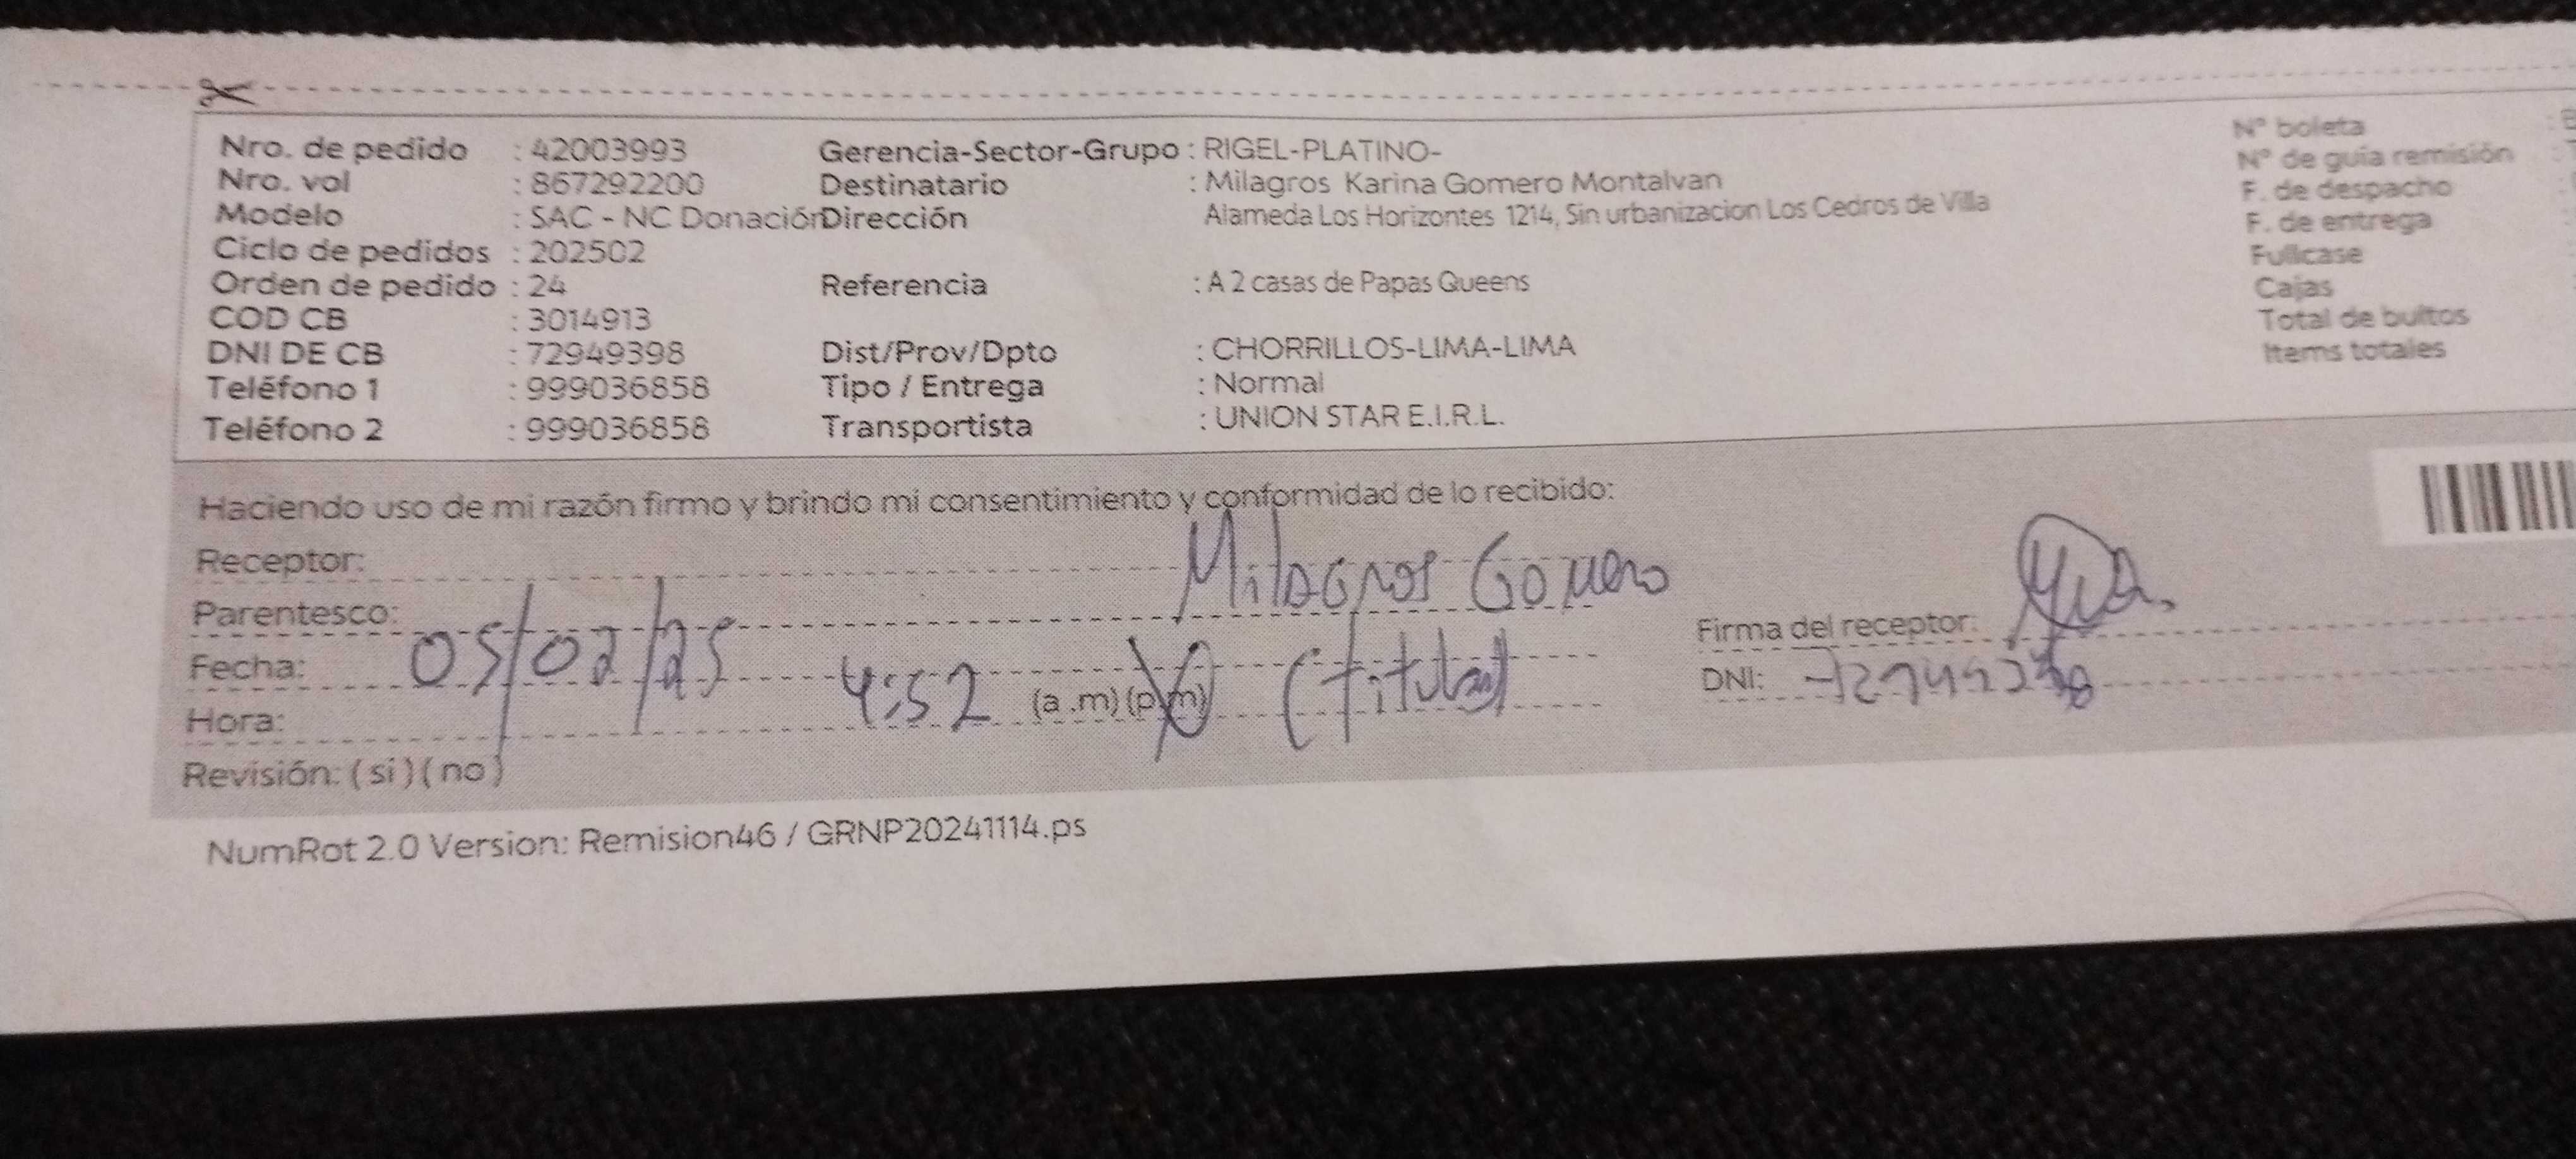 Nro. de pedido : 42003993 Gerencia-Sector-Grupo : RIGEL-PLATINO- N° boleta
Nro. vol : 867292200 Destinatario : Milagros Karina Gomero Montalvan N° de guia remisión
Modelo : SAC - NC Donación Dirección Alameda Los Horizontes 1214, Sin urbanizacion Los Cedros de Villa F. de despacho
Ciclo de pedidos : 202502 F. de entrega
Orden de pedido : 24 Referencia : A 2 casas de Papas Queens Fullcase
COD CB : 3014913 Cajas
DNI DE CB : 72949398 Dist/Prov/Dpto : CHORRILLOS-LIMA-LIMA Total de bultos
Teléfono 1 : 999036858 Tipo / Entrega : Normal Items totales
Teléfono 2 : 999036858 Transportista : UNION STAR E.I.R.L.
Haciendo uso de mi razón firmo y brindo mi consentimiento y conformidad de lo recibido:
Receptor: Milagros Gomero
Parentesco: Firma del receptor:
Fecha: 05/02/25 (titular) DNI:
Hora: 4:52 (a .m) (p.m)
Revisión: ( si ) ( no )
NumRot 2.0 Version: Remision46 / GRNP20241114.ps